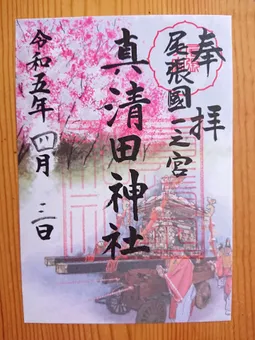 奉拝
尾張國一之宮
真清田神社
令和五年四月三日